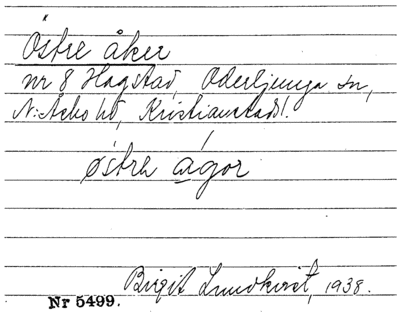 Östre åker
nr 8 Hagstad, Oderljunga sn,
N:Åsbo hd, Kristianstads l.
östre ågor
Birgit Lundkvist, 1938.
Nr 5499.